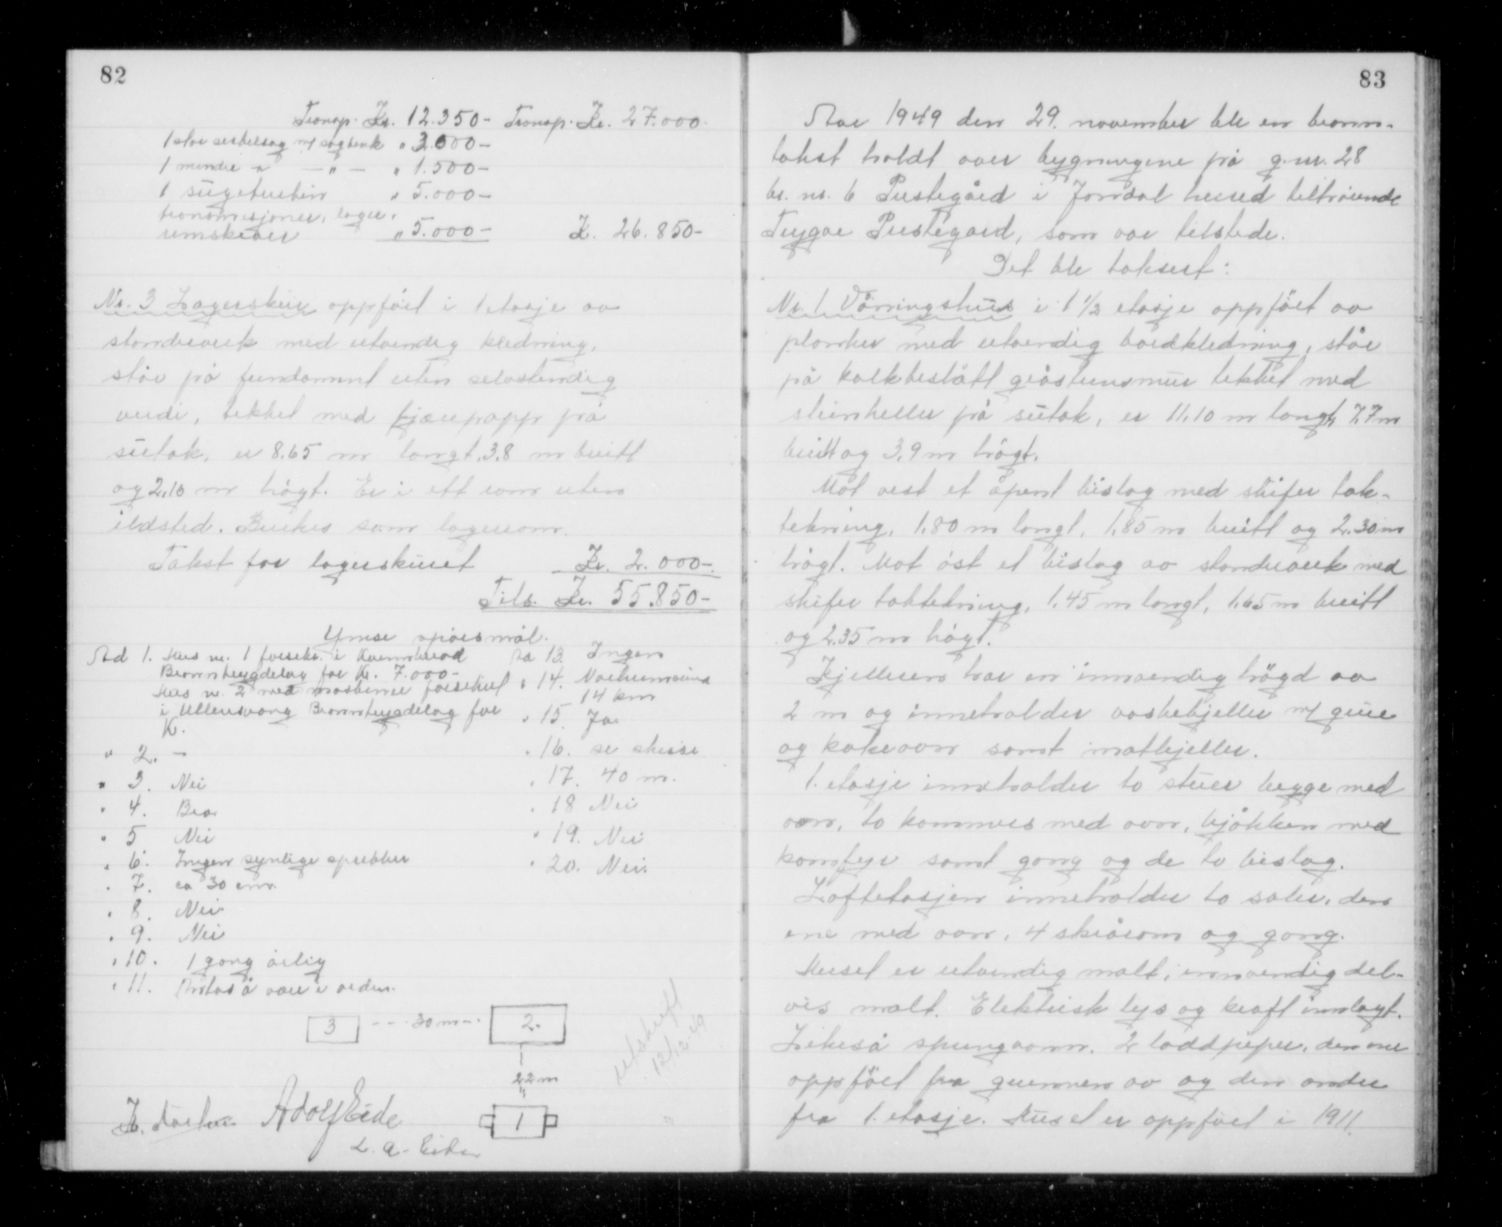 82
Transp. Kr. 12.350- Transp. Kr. 27.000.
1 stor sirkelsag m/ sagbenk " 3.000-
1 mindre " - " - " 1.500-
1 sugeturbin " 5.000-
transmisjoner, lager,
remskiver " 5.000- Kr. 26.850-
Nr. 3 Lagerskur oppført i 1 etasje av
standverk med utvendig kledning,
står på fundament uten selvstendig
verdi, tekket med tjærepapp på
sutak, er 8.65 m langt, 3.8 m breitt
og 2.10 m høgt. Er i ett rom uten
ildsted. Brukes som lagerrom.
Takst for lagerskuret Kr. 2.000-
Tils. Kr. 55.850-
Ymse spørsmål.
Ad 1. Hus nr. 1 forsikr. i Kvam herad
Branntrygdelag for Kr. 7.000-
Hus nr. 2 med maskiner forsikret
i Ullensvang Branntrygdelag for
Kr.
" 2. -
" 3. Nei
" 4. Bra
" 5 Nei
" 6. Ingen synlige sprekker
" 7. ca 30 cm.
" 8. Nei
" 9. Nei
" 10. 1 gang årlig
" 11. Antas å være i orden.
Ad 13. Ingen
" 14. Norheimsund
14 km
" 15. Ja
" 16. se skisse
" 17. 40 m.
" 18 Nei
" 19. Nei
" 20. Nei.
3 --- 30 m --- 2.
22 m
1
Adolf Eide
utskrift
12/12-49
83
Aar 1949 den 29. november ble en brann-
takst holdt over bygningene på g.nr. 28
br. nr. 6 Prestegård i Jondal herred tilhørende
Trygve Prestegard, som var tilstede.
Det ble taksert:
Nr. 1 Våningshus i 1 1/2 etasje oppført av
planker med utvendig bordkledning, står
på kalkbeslått gråsteinsmur tekket med
steinheller på sutak, er 11.10 m langt, 7.7 m
breitt og 3.9 m høgt.
Mot vest et åpent bislag med skifer tak-
tekning, 1.80 m langt, 1.85 m breitt og 2.30 m
høgt. Mot øst et bislag av standverk med
skifer taktekning, 1.45 m langt, 1.65 m breitt
og 2.35 m høgt.
Kjelleren har en innvendig høgd av
2 m og inneholder vaskekjeller m/ grue
og kokeovn samt matkjeller.
1. etasje inneholder to stuer begge med
ovn, to kammers med ovn, kjøkken med
komfyr samt gang og de to bislag.
Loftetasjen inneholder to saler, den
ene med ovn, 4 skrårom og gang.
Huset er utvendig malt, innvendig del-
vis malt. Elektrisk lys og kraft innlagt.
Likeså springvann. 2 loddpiper, den ene
oppført fra grunnen av og den andre
fra 1. etasje. Huset er oppført i 1911.